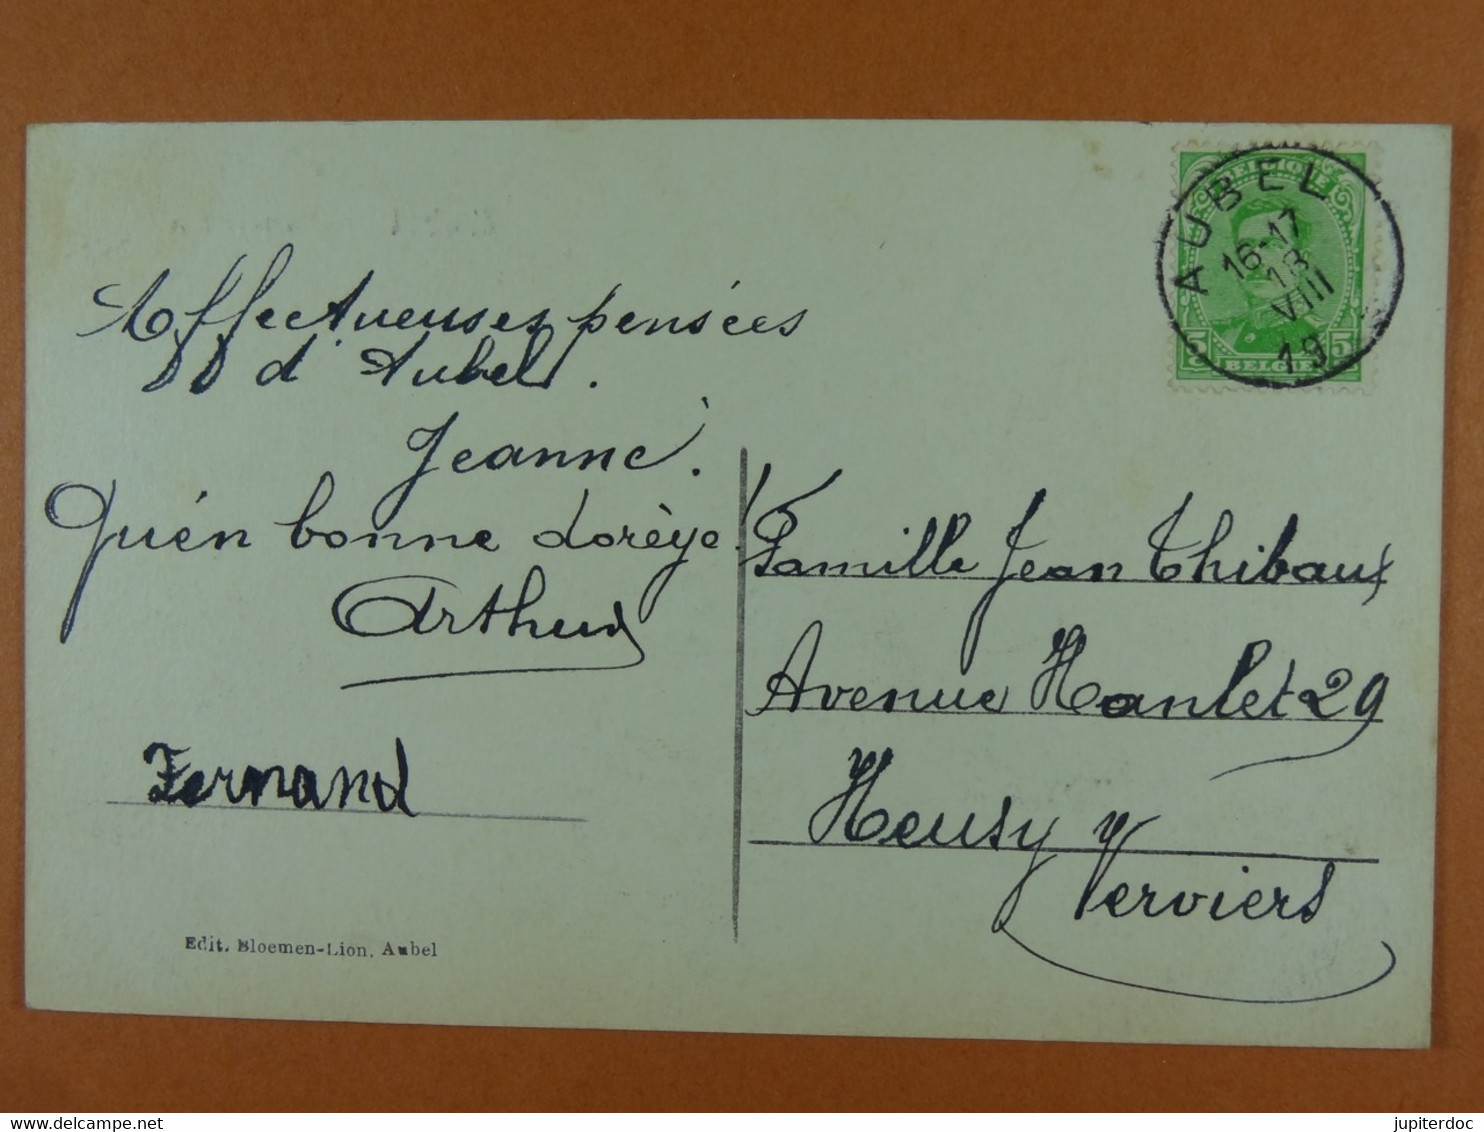 Affectueuses pensées
d'Aubel.
Jeanne.
Quén bonne dorèye!
Arthur
Fernand
Edit. Bloemen-Lion, Aubel
BELGIQUE
AUBEL
16-17
18
VIII
19
5 5
BELGIË
Famille Jean Thibaux
Avenue Hanlet 29
Heusy
Verviers
jupiterdoc